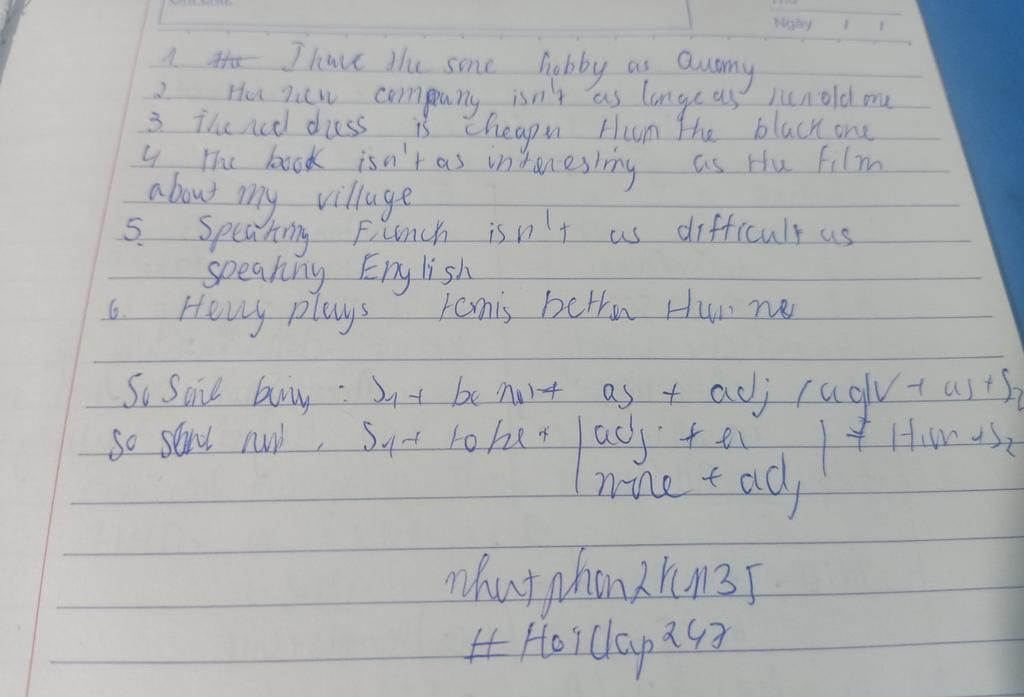 Ngày / /
1. I have the same hobby as
2. Her new company isn't as large as her old one
3. The red dress is cheaper than the black one
4 The book isn't as interesting as the film
about my village
5. Speaking French isn't as difficult as
speaking English
6. Henry plays tennis better than me
So sánh bằng : S1 + be not + as + adj / adv + as + S2
so sánh hơn : S1 + to be + | adj + er | + than + S2
more + adj
nhutphan2k1135
#Hoidap247